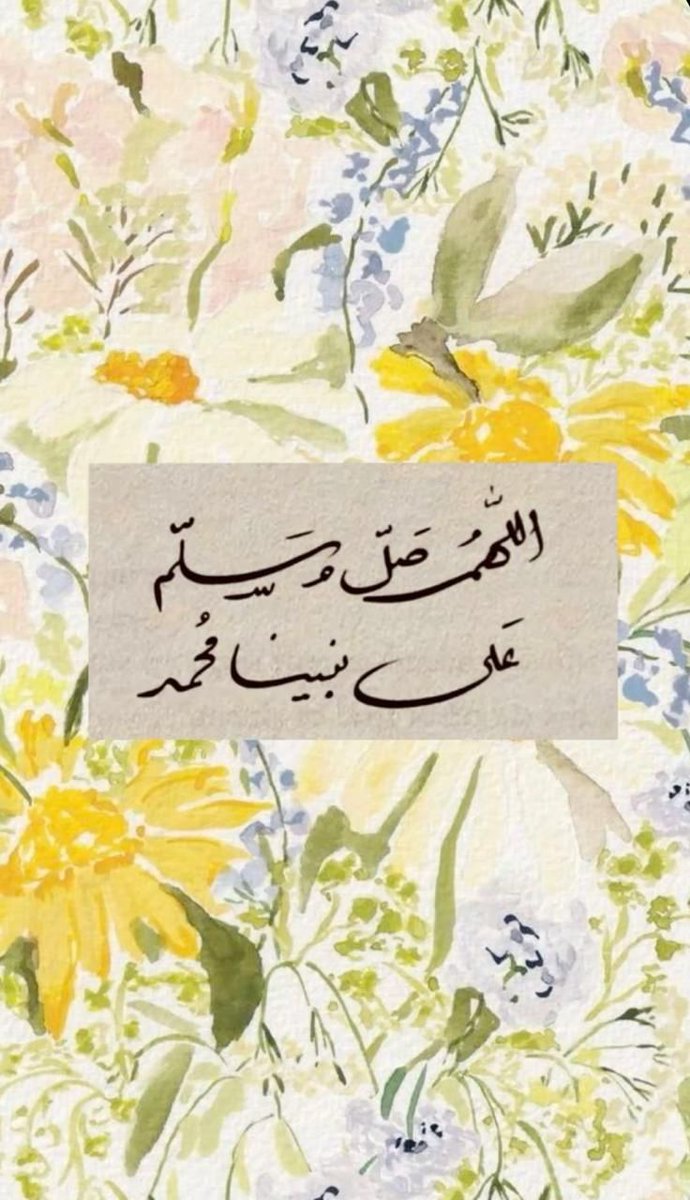 اللهُمَّ صَلّ وَسَلّم
عَلى نبينا مُحمد